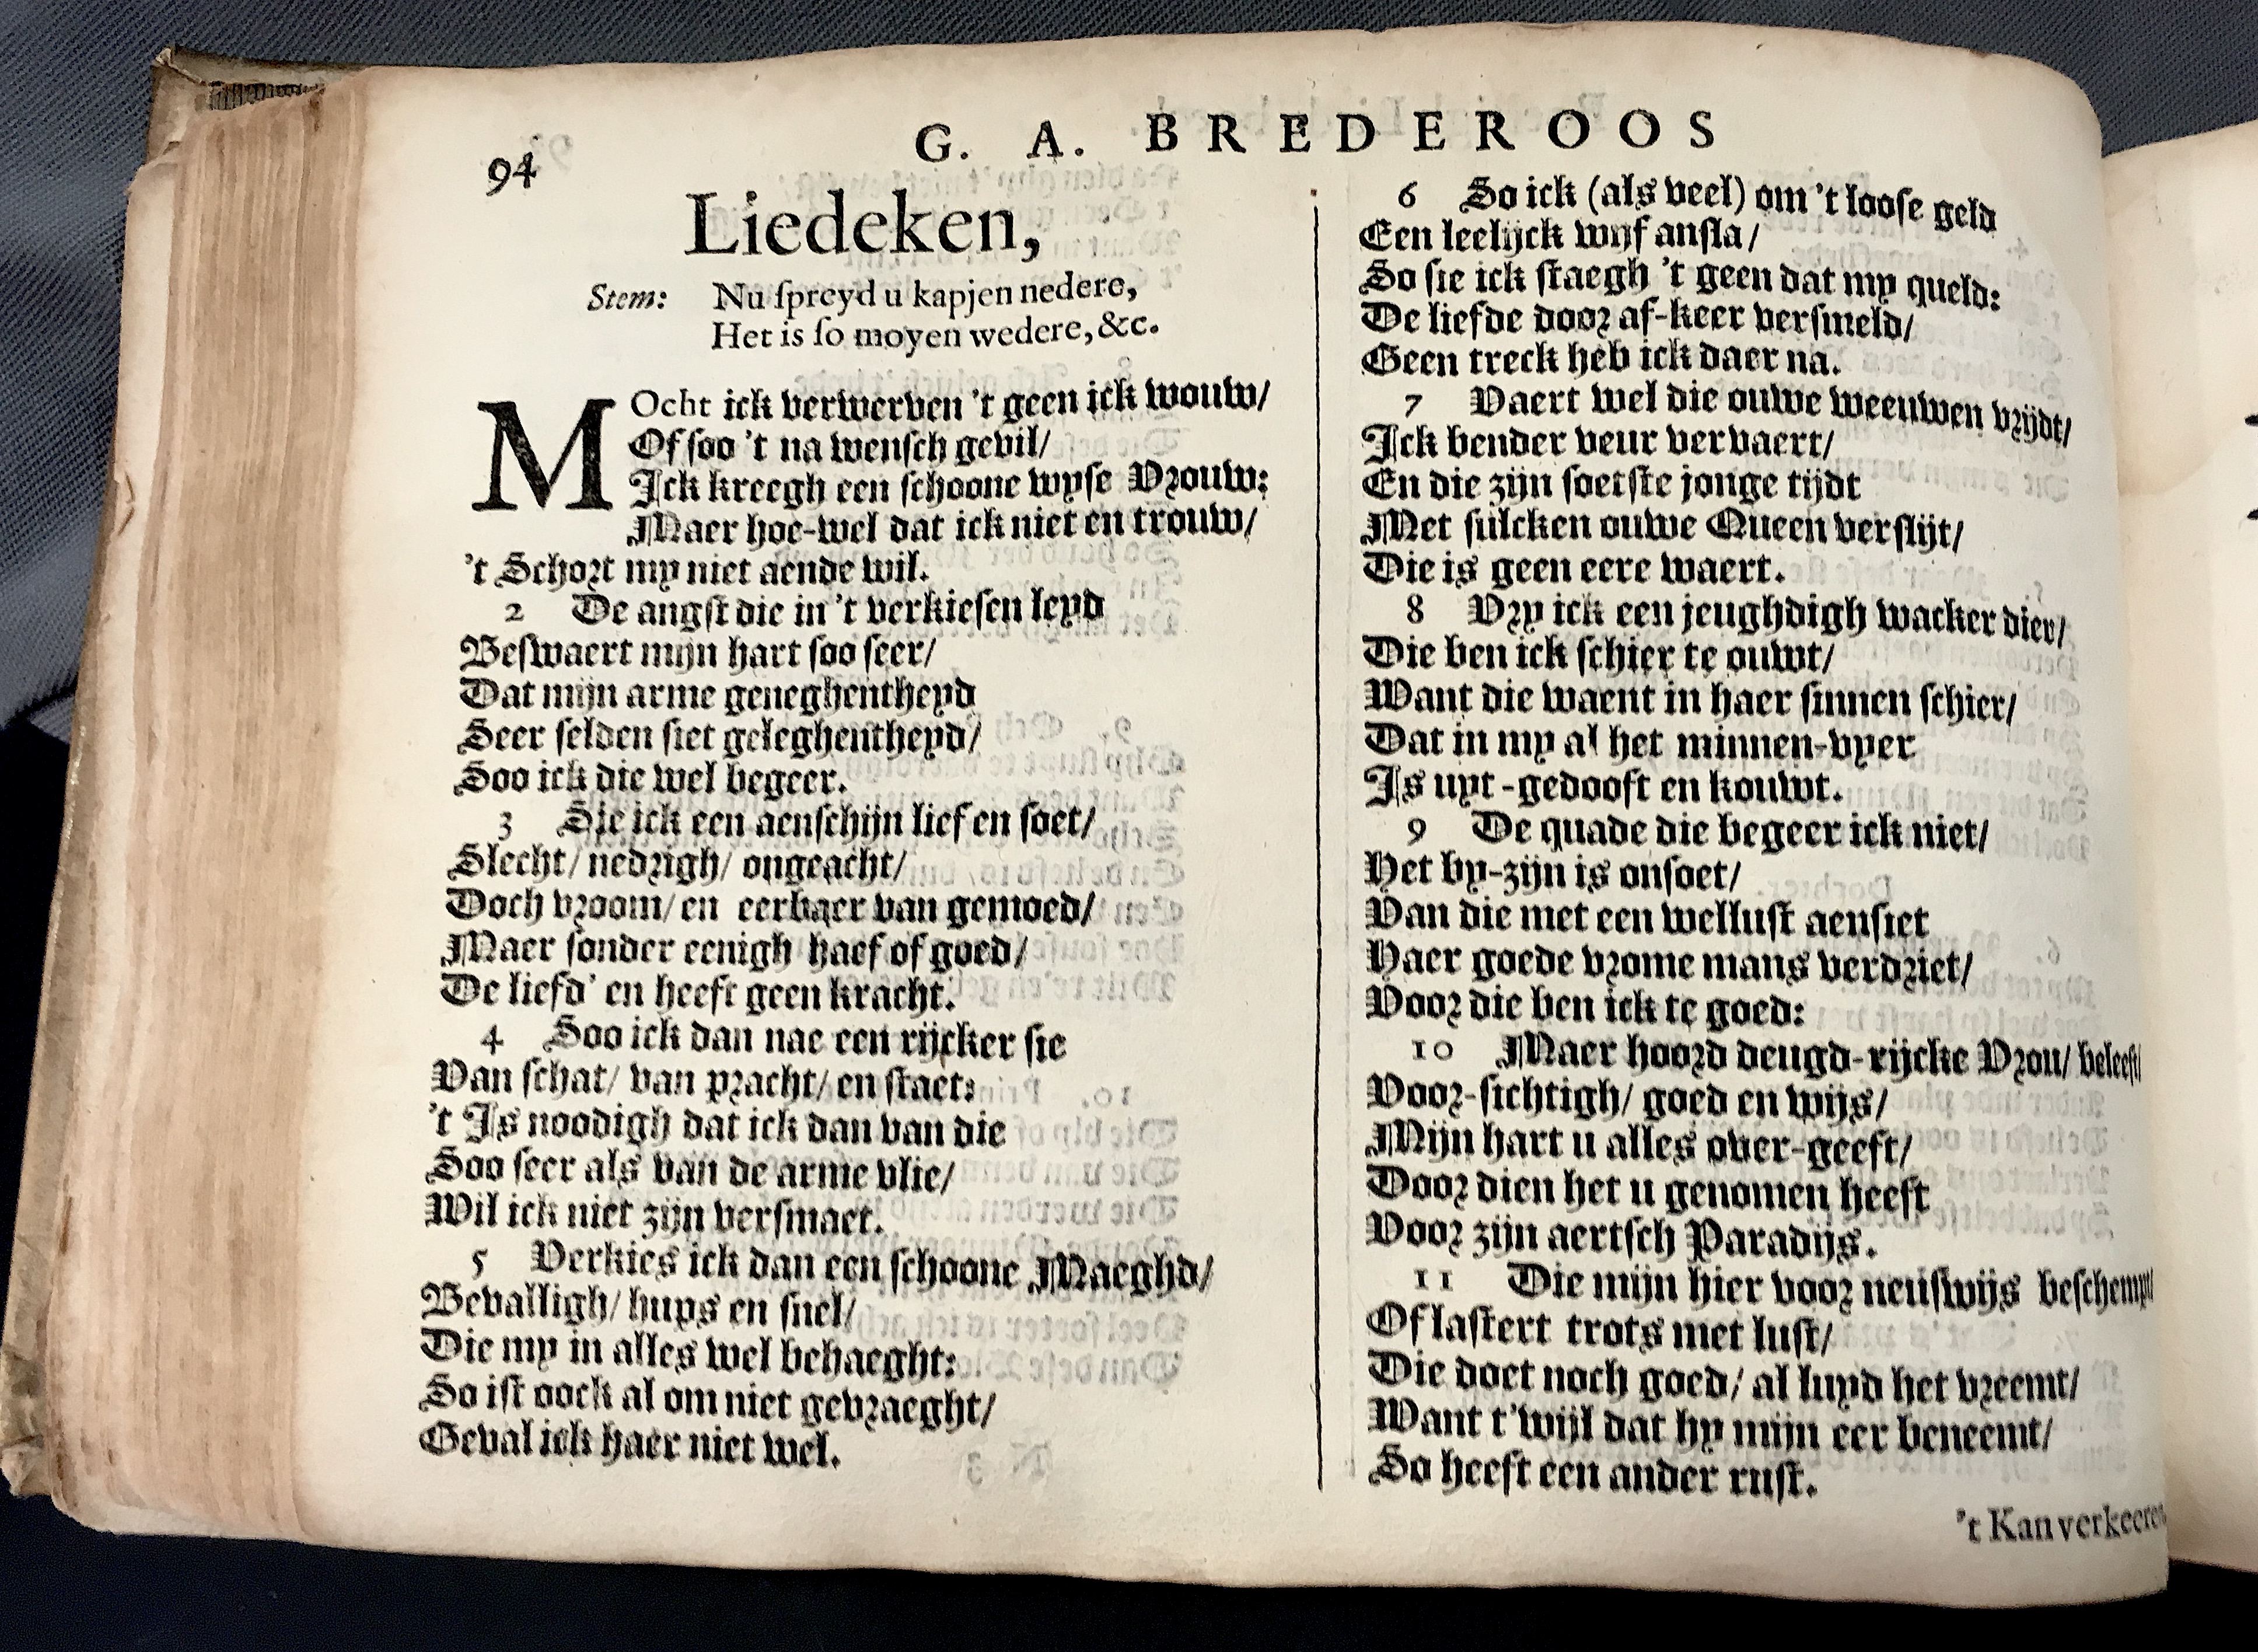 94
G. A. BREDEROOS
Liedeken,
Stem: Nu ſpreyd u kapjen nedere,
Het is ſo moyen wedere, &c.
MOcht ick verwerven 't geen ick wouw/
Of soo 't na wensch gevil/
Ick kreegh een schoone wyse Vrouw:
Maer hoe-wel dat ick niet en trouw/
't Schort my niet aende wil.
2 De angst die in 't verkiesen leyd
Beswaert mijn hart soo seer/
Dat mijn arme geneghentheyd
Seer selden siet geleghentheyd/
Soo ick die wel begeer.
3 Sie ick een aenschijn lief en soet/
Slecht/ nedrigh/ ongeacht/
Doch vroom/ en eerbaer van gemoed/
Maer sonder eenigh haef of goed/
De liefd' en heeft geen kracht.
4 Soo ick dan nae een rijcker sie
Van schat/ van pracht/ en staet:
't Is noodigh dat ick dan van die
Soo seer als van de arme vlie/
Wil ick niet zijn versmaet.
5 Verkies ick dan een schoone Maeghd/
Bevalligh/ hups en snel/
Die my in alles wel behaeght:
So ist oock al om niet gevraeght/
Geval ick haer niet wel.
6 So ick (als veel) om 't loose geld
Een leelijck wijf ansla/
So sie ick staegh 't geen dat my queld:
De liefde door af-keer versmeld/
Geen treck heb ick daer na.
7 Vaert wel die ouwe weeuwen vrijdt/
Ick bender veur vervaert/
En die zijn soetste jonge tijdt
Met sulcken ouwe Queen verslijt/
Die is geen eere waert.
8 Vry ick een jeughdigh wacker dier/
Die ben ick schier te ouwt/
Want die waent in haer sinnen schier/
Dat in my al het minnen-vyer
Is uyt-gedooft en kouwt.
9 De quade die begeer ick niet/
Het by-zijn is onsoet/
Van die met een wellust aensiet
Haer goede vrome mans verdriet/
Voor die ben ick te goed:
10 Maer hoord deugd-rijcke Vrou/ beleeft/
Voor-sichtigh/ goed en wijs/
Mijn hart u alles over-geeft/
Door dien het u genomen heeft
Voor zijn aertsch Paradijs.
11 Die mijn hier voor neuswijs beschempt/
Of lastert trots met lust/
Die doet noch goed/ al luyd het vreemt/
Want t'wijl dat hy mijn eer beneemt/
So heeft een ander rust.
't Kan verkeeren